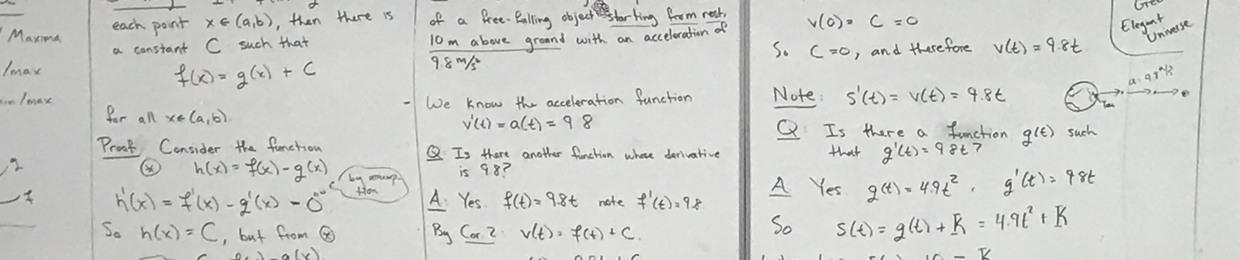 Maxima
/max
/max
each point x ∈ (a,b), then there is
a constant C such that
f(x) = g(x) + C
for all x ∈ (a,b).
Proof: Consider the function
⊛ h(x) = f(x) - g(x)
by assumption
h'(x) = f'(x) - g'(x) = 0
So h(x) = C, but from ⊛
of a free-falling object starting from rest,
10 m above ground with an acceleration of
9.8 m/s²
- We know the acceleration function
v'(t) = a(t) = 9.8
Q: Is there another function whose derivative
is 9.8?
A: Yes. f(t) = 9.8t note f'(t) = 9.8
By Cor. 2: v(t) = f(t) + C.
v(0) = C = 0
So C=0, and therefore v(t) = 9.8t.
Elegant
Universe
Note: s'(t) = v(t) = 9.8t
Q: Is there a function g(t) such
that g'(t) = 9.8t?
A: Yes g(t) = 4.9t², g'(t) = 9.8t
So s(t) = g(t) + K = 4.9t² + K